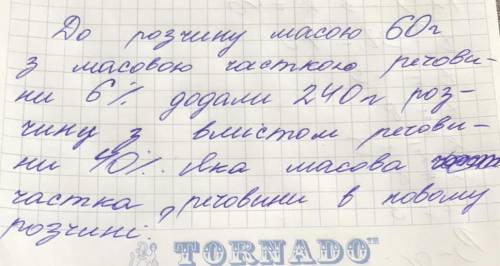 До розчину масою 60г
з масовою часткою речови-
ни 6% додали 240г роз-
чину з вмістом речови-
ни 40%. Яка масова
частка речовини в новому
розчині?
TORNADO